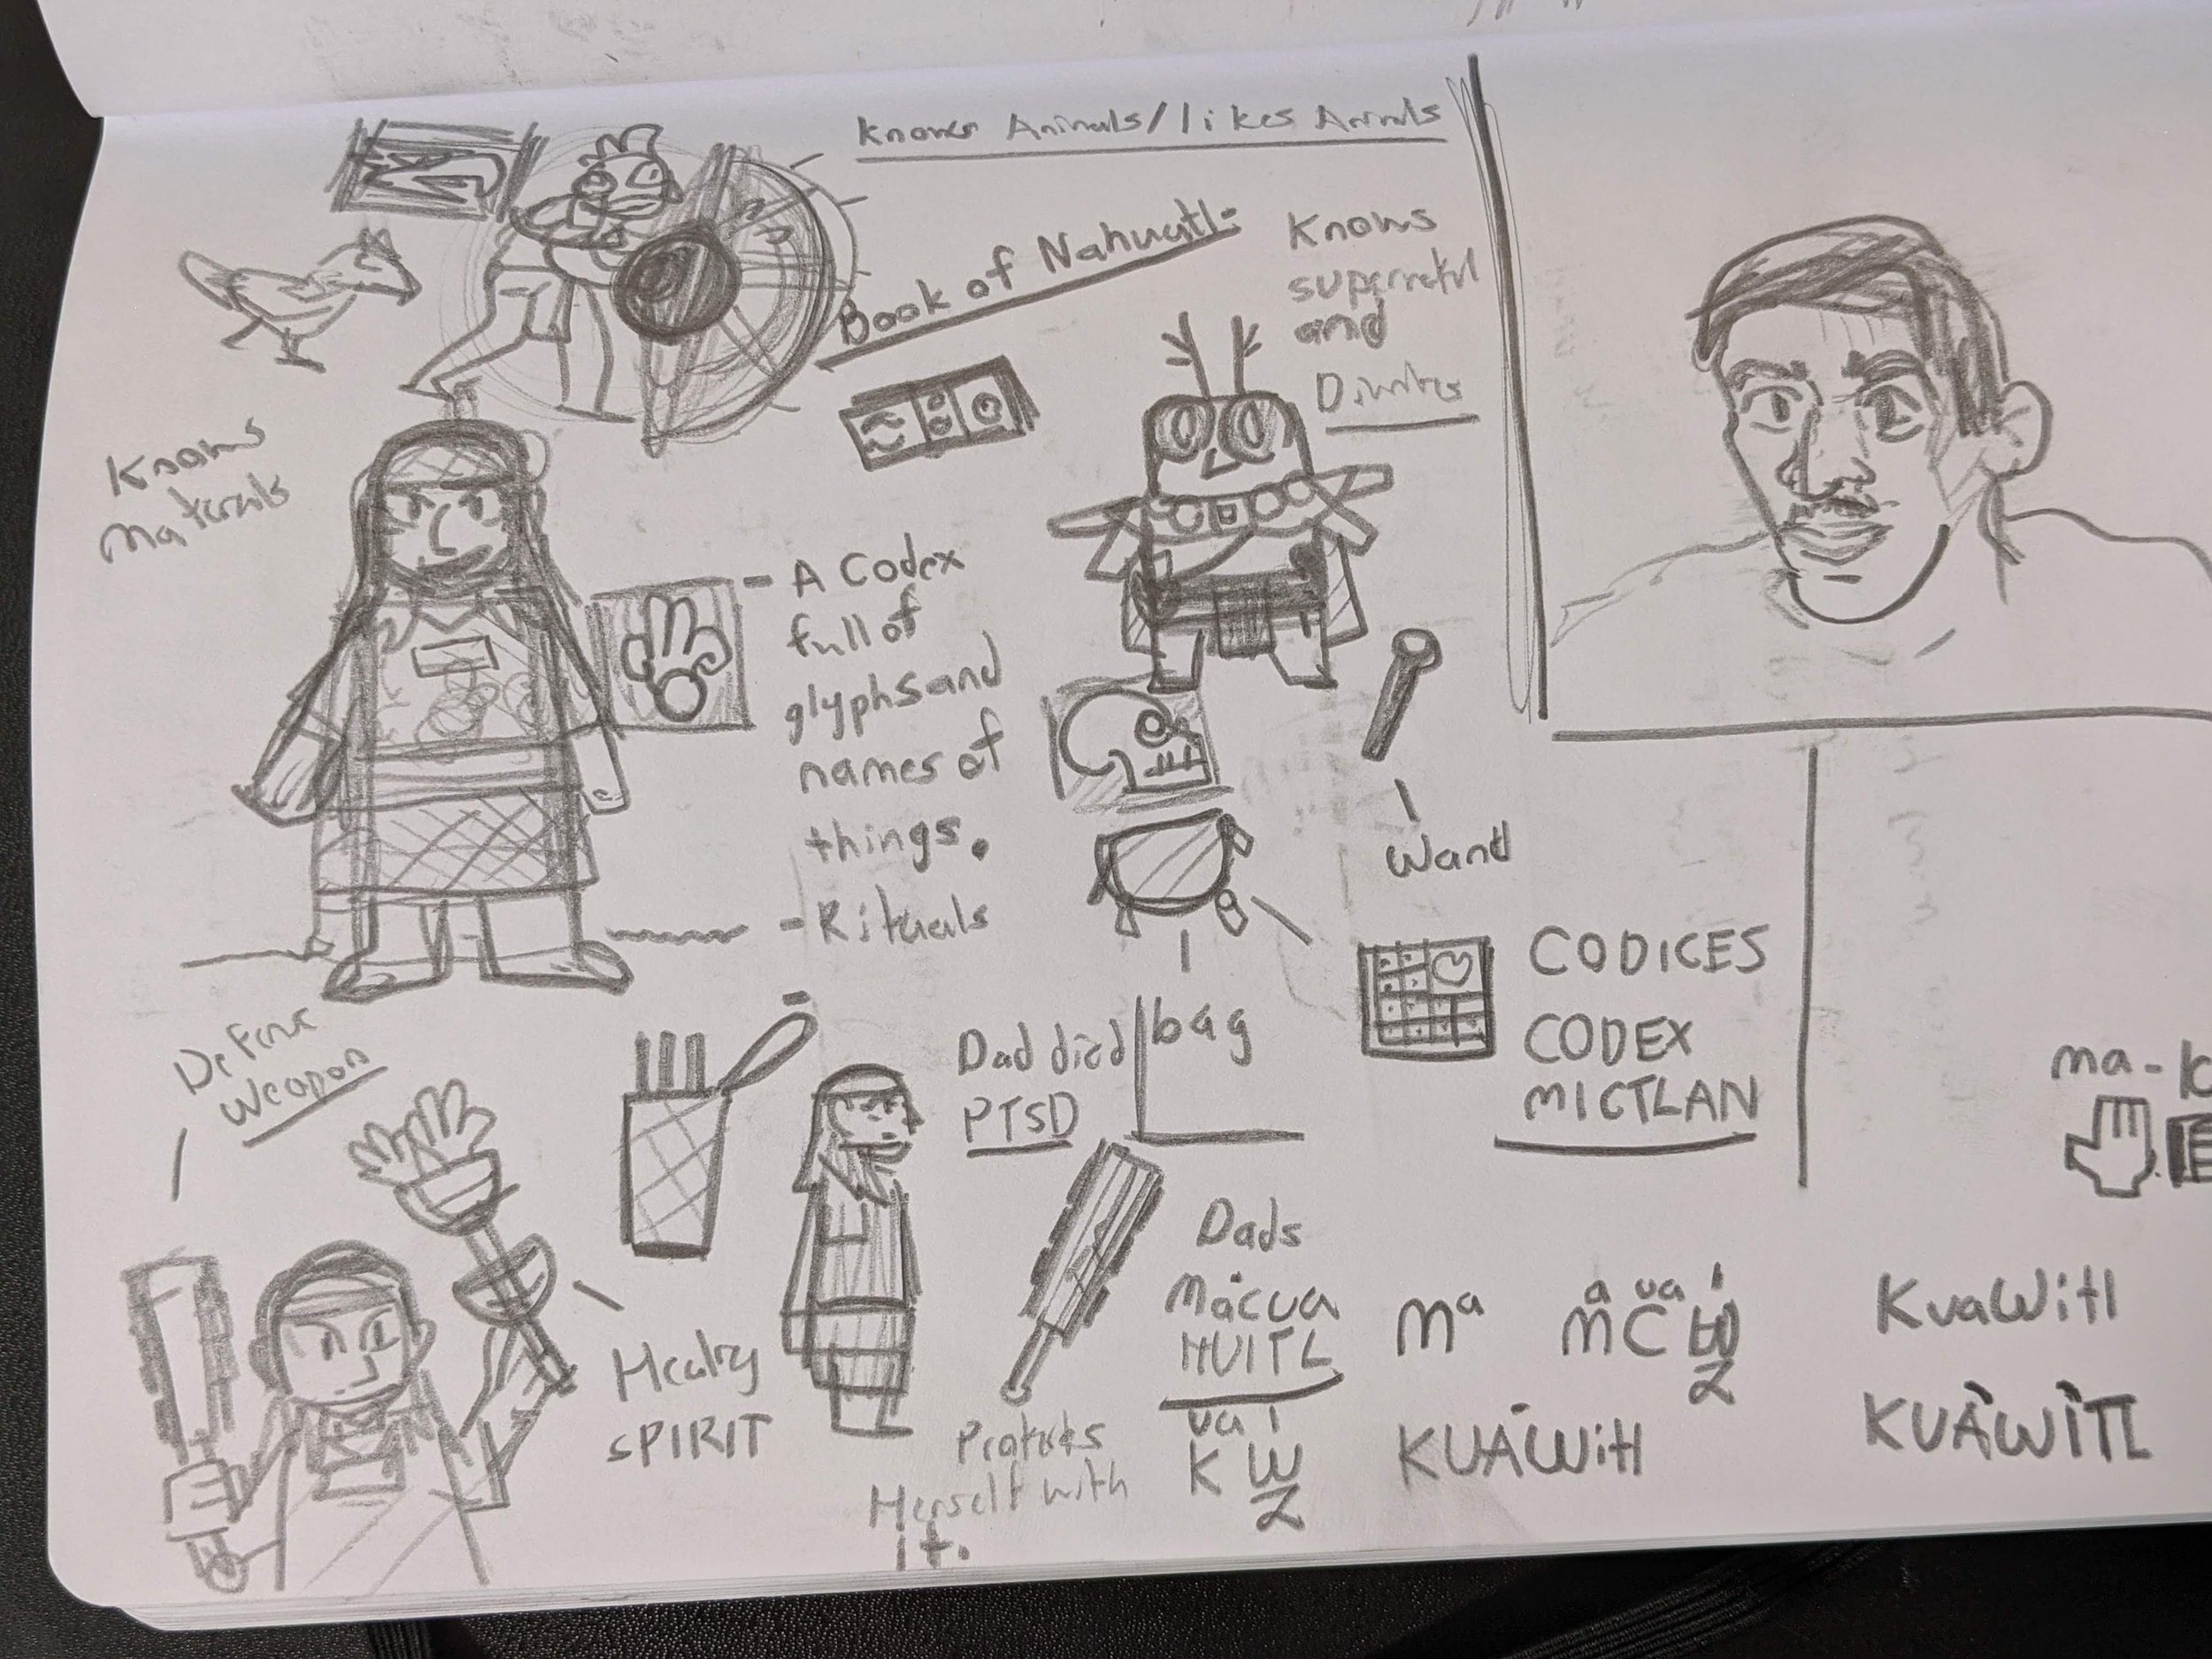 Knows Animals/likes Animals
Book of Nahuatl:
Knows
and
Knows
Materials
- A Codex
full of
glyphs and
names of
things.
- Rituals
wand
bag
CODICES
CODEX
MICTLAN
Weapon
Dad died
PTSD
Healing
SPIRIT
Protects
Herself with
it.
Dads
Macua
HUITL
ma
a ua i
m C W
Z
ua i
K W
Z
KUAWitl
KuaWitl
KUAWITL
ma-k